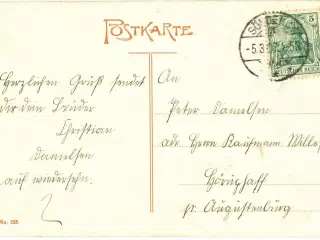 POSTKARTE
5
-5.3
Herzlichen Gruß sendet
der dein Brüder
Christian
Danielsen
auf wiedersehn.
An
Peter Danielsen
adr. Herrn Kaufmann
Höruphaff
pr Augustenburg
No. 335